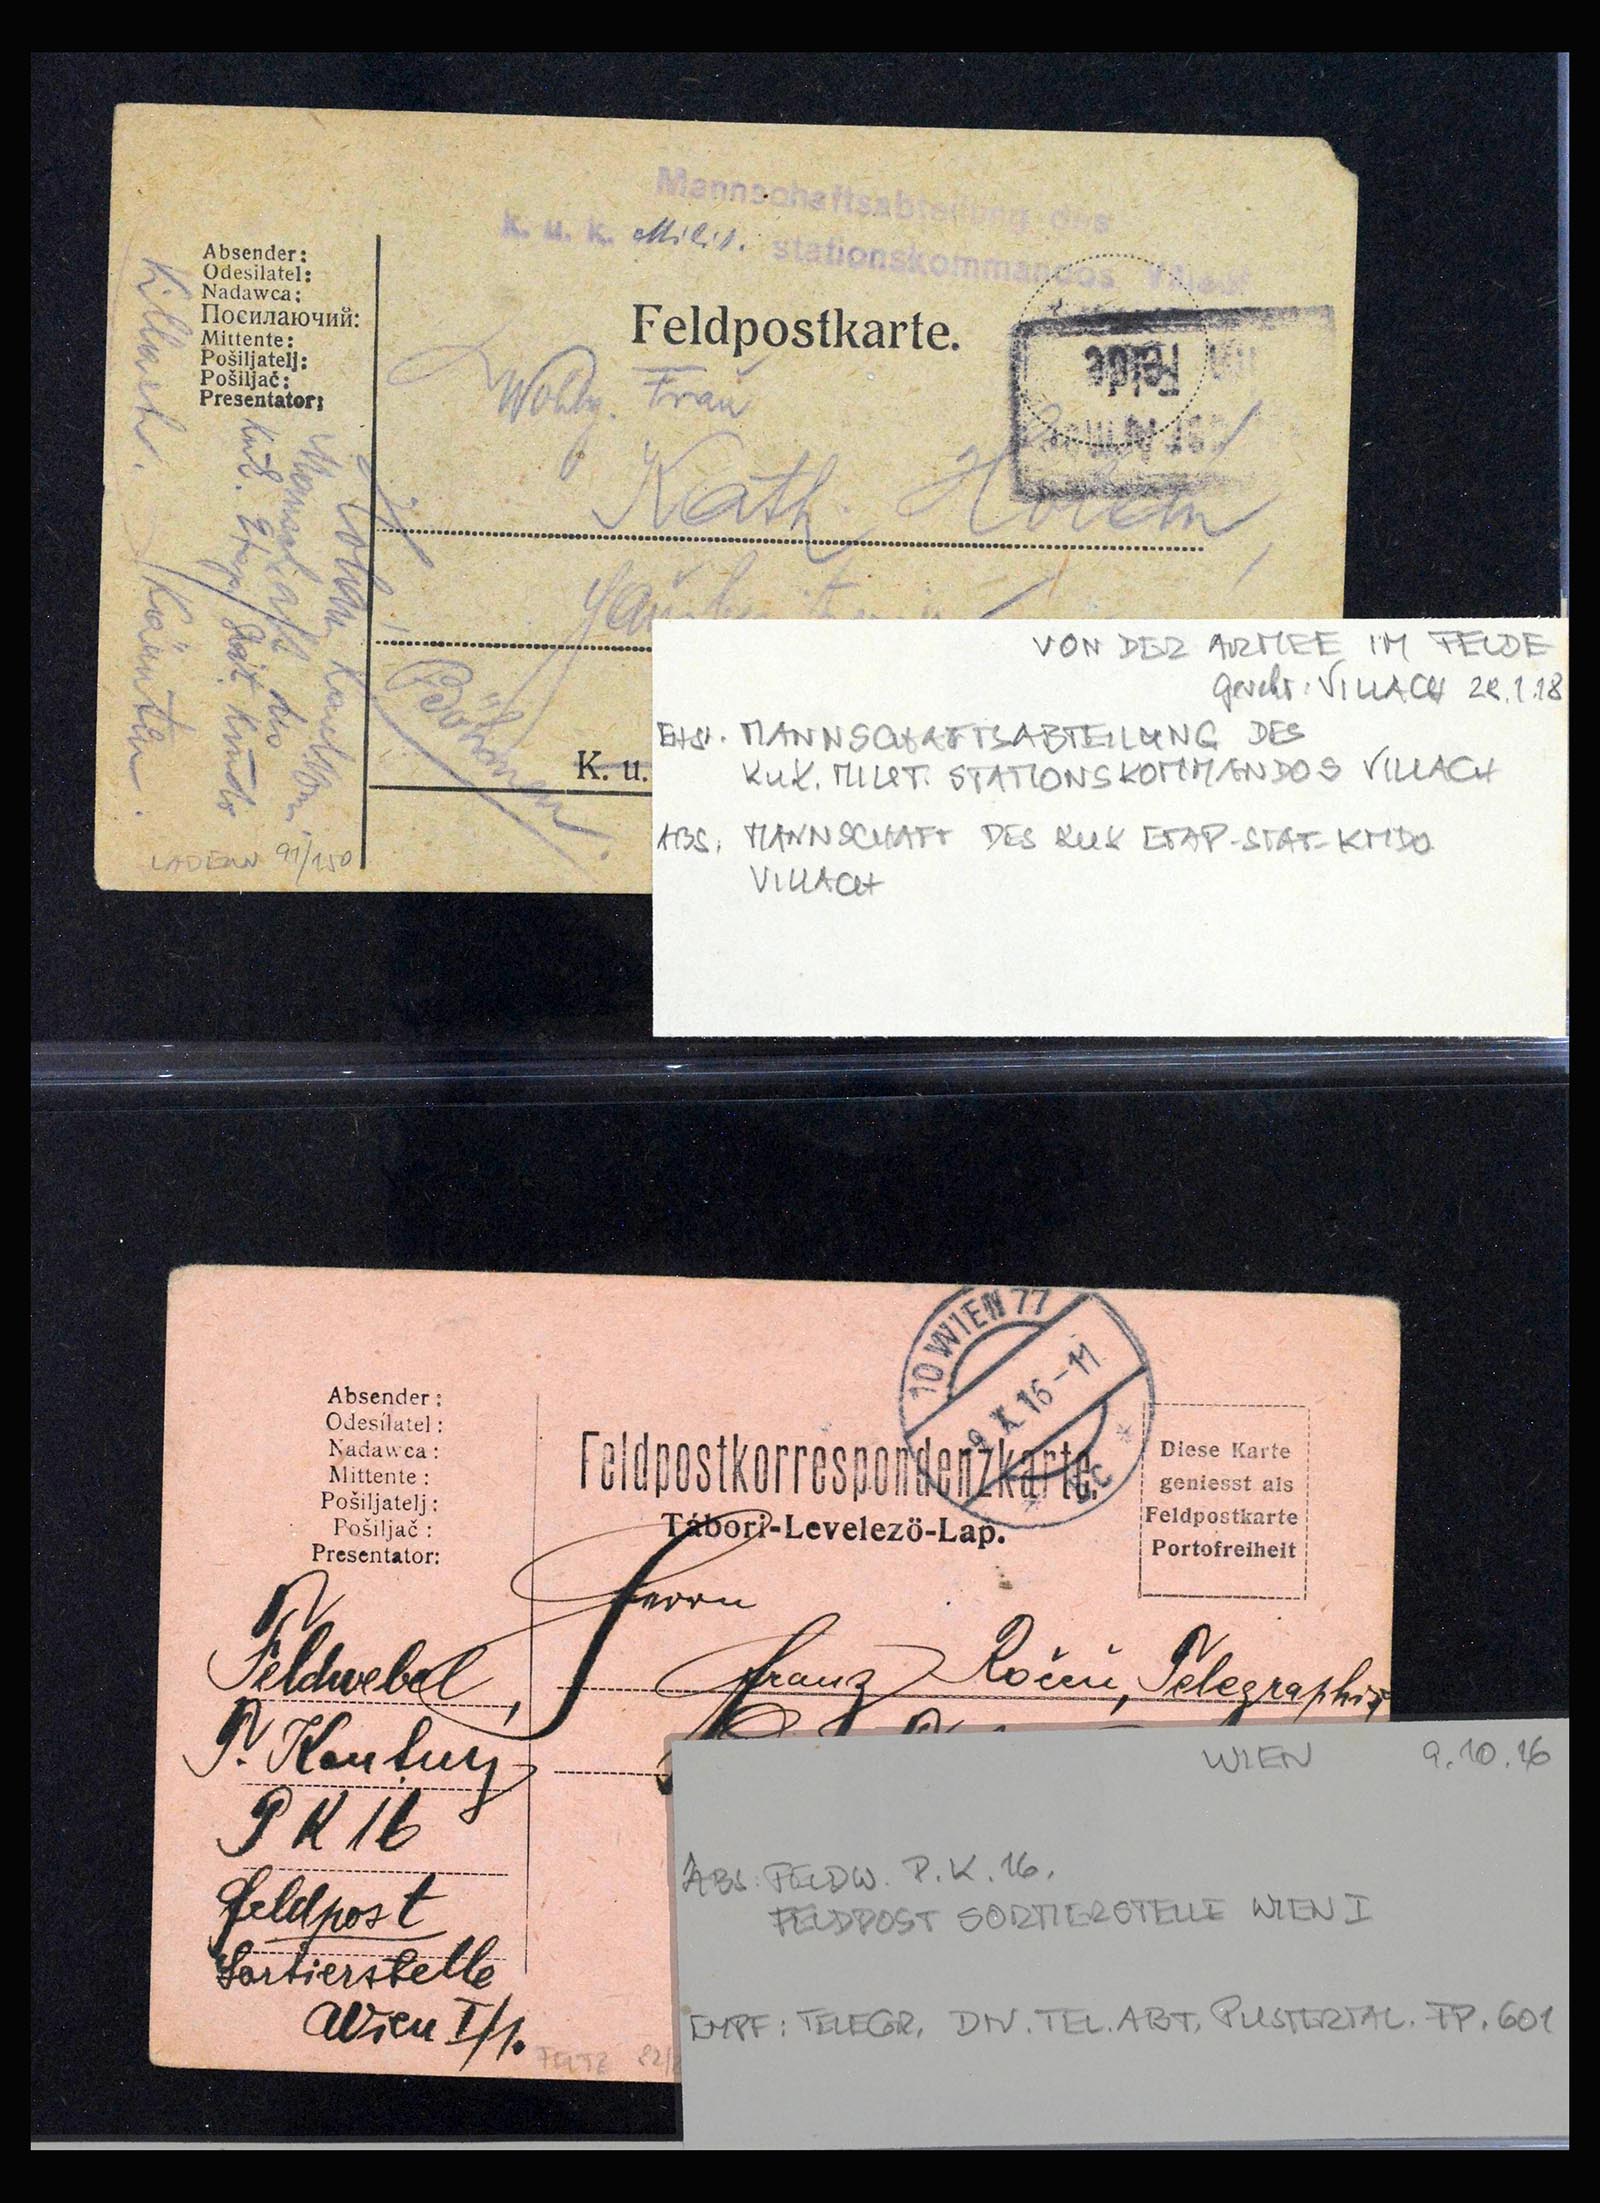 Mannschaftsabteilung des
k. u. k. Milit. stationskommandos Villach
Absender:
Odesilatel:
Nadawca:
Посилаючий:
Mittente:
Pošiljatelj:
Pošiljač:
Presentator:
Feldpostkarte.
Felde
Wohlg. Frau
Kath.
Böhmen
K. u.
Mannschaft des
Villach. Kärnten.
91/150
VON DER ARMEE IM FELDE
VILLACH 28.1.18
MANNSCHAFTSABTEILUNG DES
KUK. MILIT. STATIONSKOMMANDOS VILLACH
ABS. MANNSCHAFT DES KUK ETAP-STAT-KMDO
VILLACH
10 WIEN 77
9.X.16-11
* 3c *
Absender:
Odesílatel:
Nadawca:
Mittente:
Pošiljatelj:
Pošiljač:
Presentator:
Feldpostkorrespondenzkarte.
Tábori-Levelező-Lap.
Diese Karte
geniesst als
Feldpostkarte
Portofreiheit
Herrn
Franz Telegraphist
Feldwebel,
P.
P K 16
Feldpost
Sortierstelle
Wien I/1.
WIEN 9.10.16
ABS: FELDW. P.K.16.
FELDPOST SORTIERSTELLE WIEN I
EMPF: TELEGR. DIV. TEL. ABT. PUSTERTAL. FP. 601